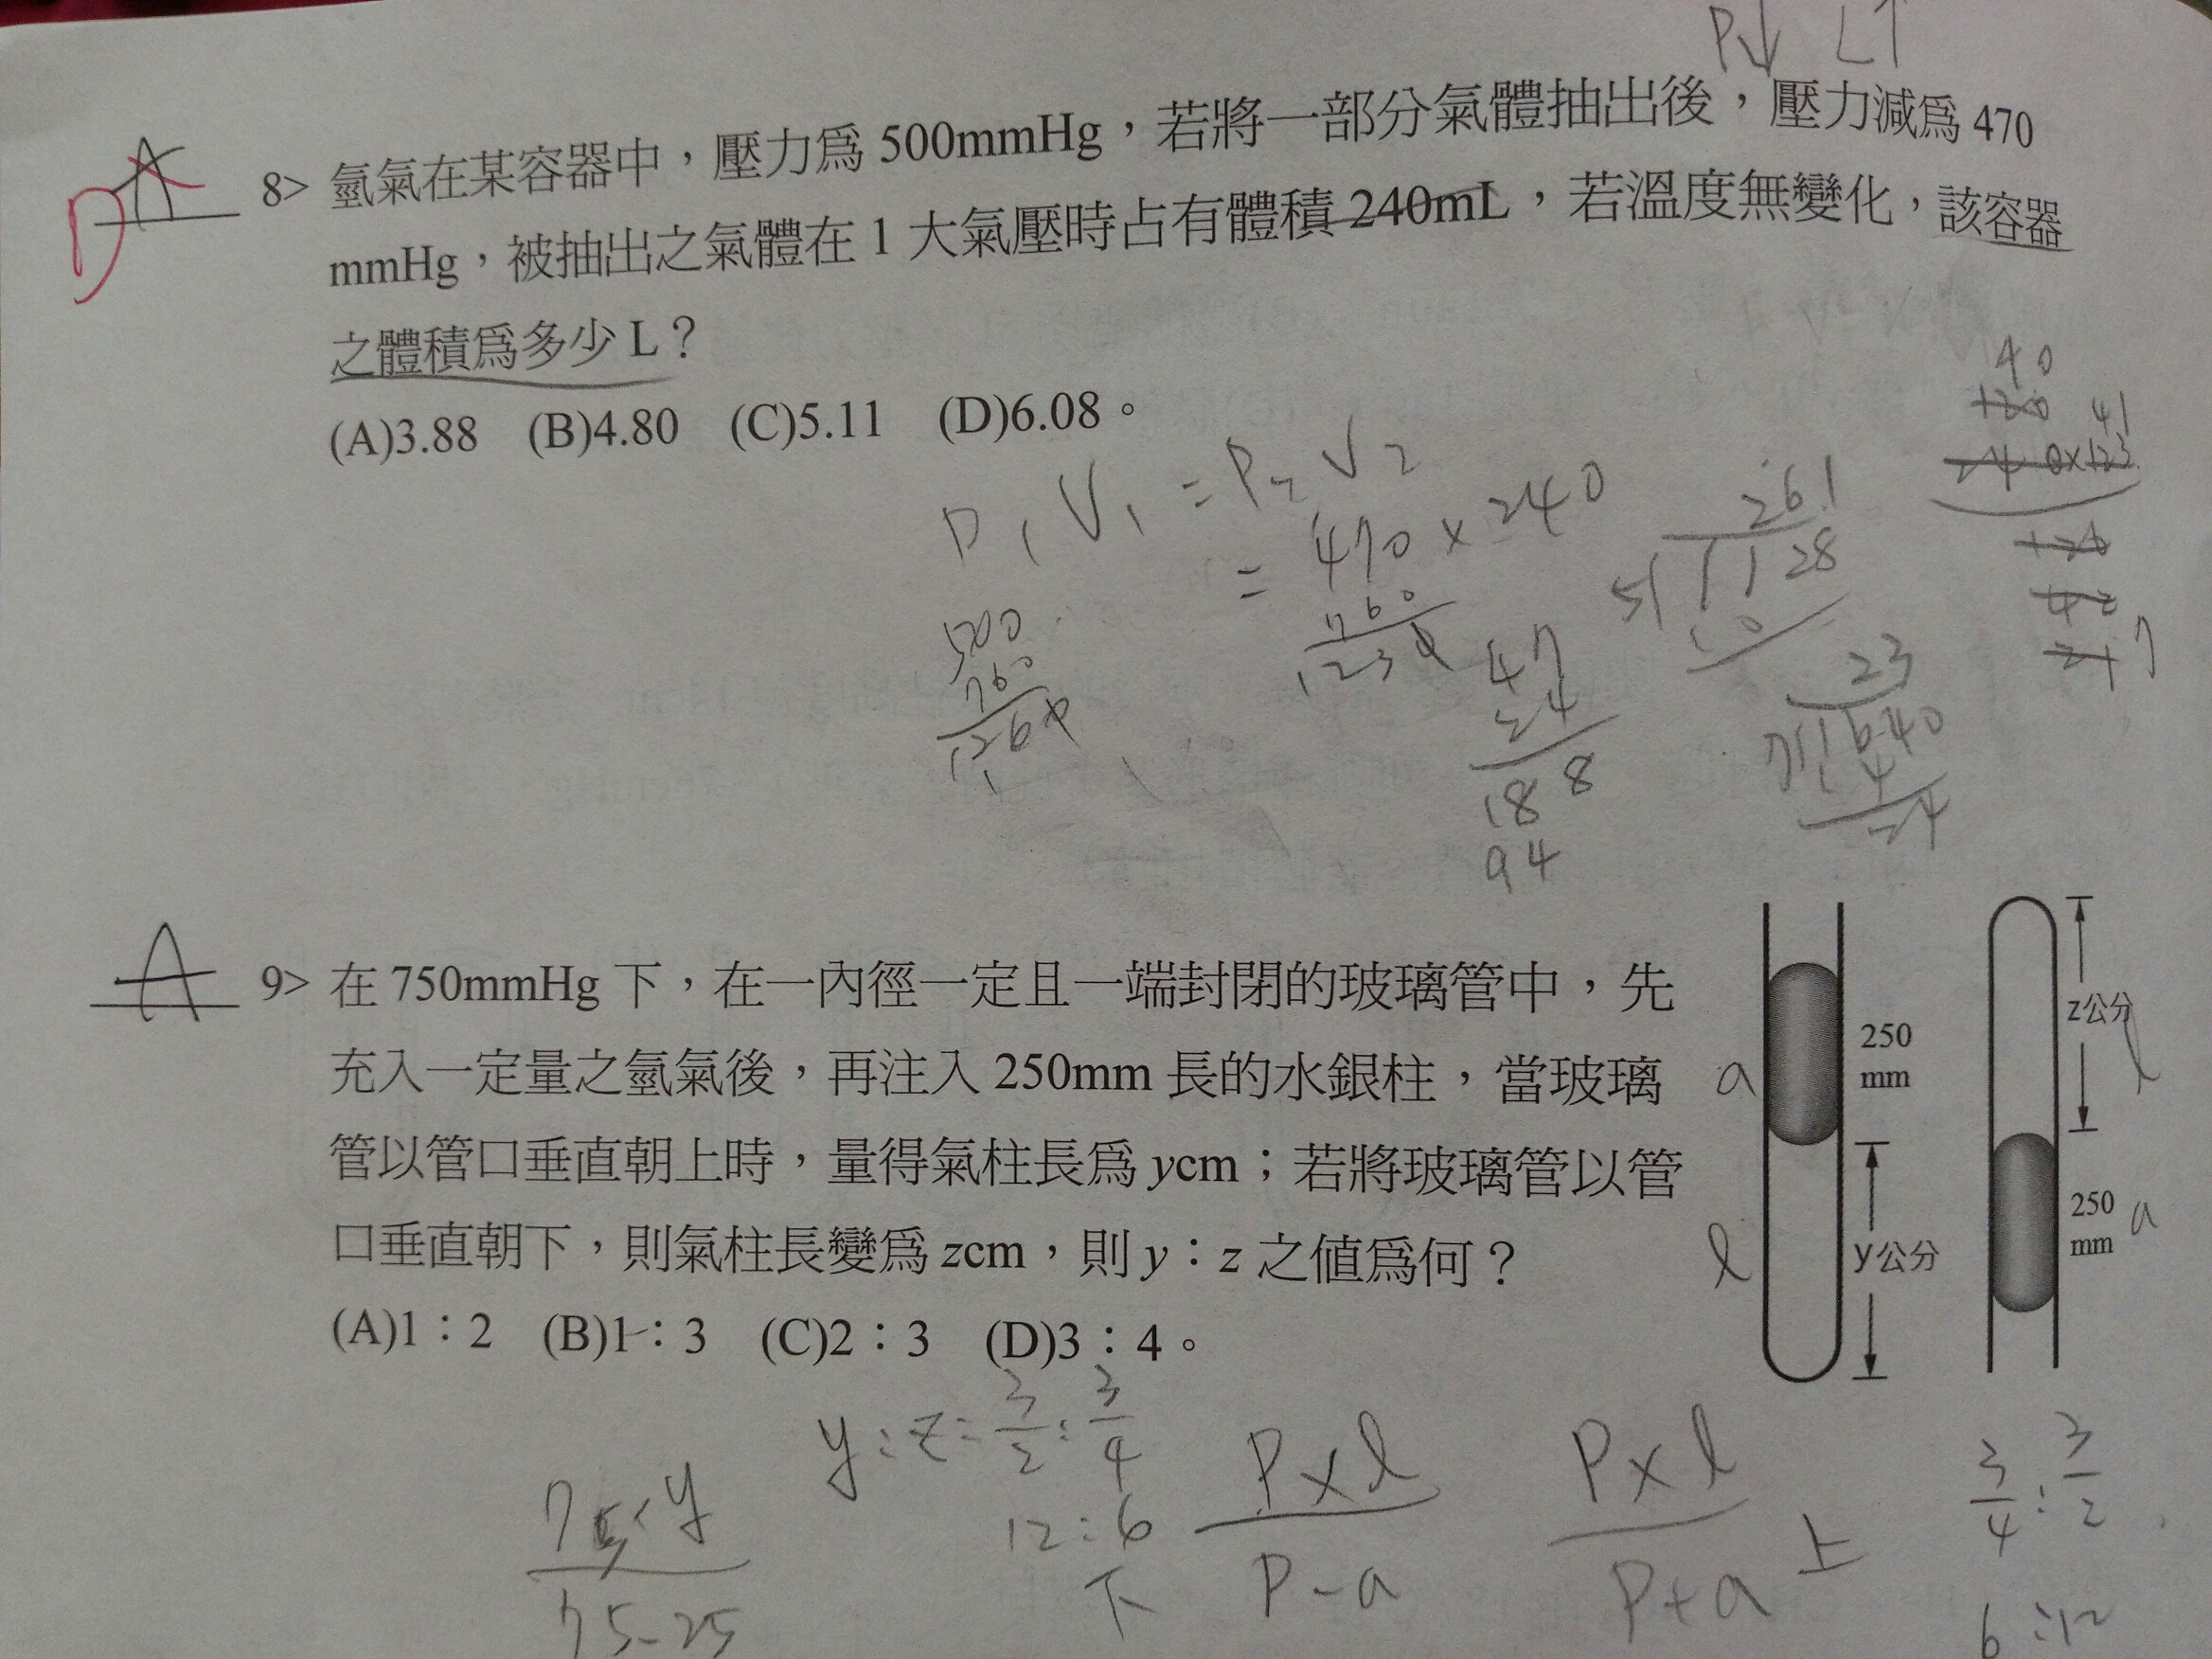 P↓ L↑
D A 8> 氫氣在某容器中，壓力爲 500mmHg，若將一部分氣體抽出後，壓力減爲 470
mmHg，被抽出之氣體在 1 大氣壓時占有體積 240mL，若溫度無變化，該容器
之體積爲多少 L？
(A)3.88 (B)4.80 (C)5.11 (D)6.08。
P₁V₁ = P₂V₂
= 470 × 240
500
760
126
760
123
47
24
188
94
261
5 1128
10
23
7 1640
14
24
40
120 41
240×123
A 9> 在 750mmHg 下，在一內徑一定且一端封閉的玻璃管中，先
充入一定量之氫氣後，再注入 250mm 長的水銀柱，當玻璃
管以管口垂直朝上時，量得氣柱長爲 ycm；若將玻璃管以管
口垂直朝下，則氣柱長變爲 zcm，則 y：z 之值爲何？
(A)1：2 (B)1：3 (C)2：3 (D)3：4。
a
250
mm
l
y公分
z公分
l
250
mm
a
y:z=3/2:3/4
12:6
下
75×y
75-25
P×l
P-a
P×l
P+a
上
3/4:3/2
6:12